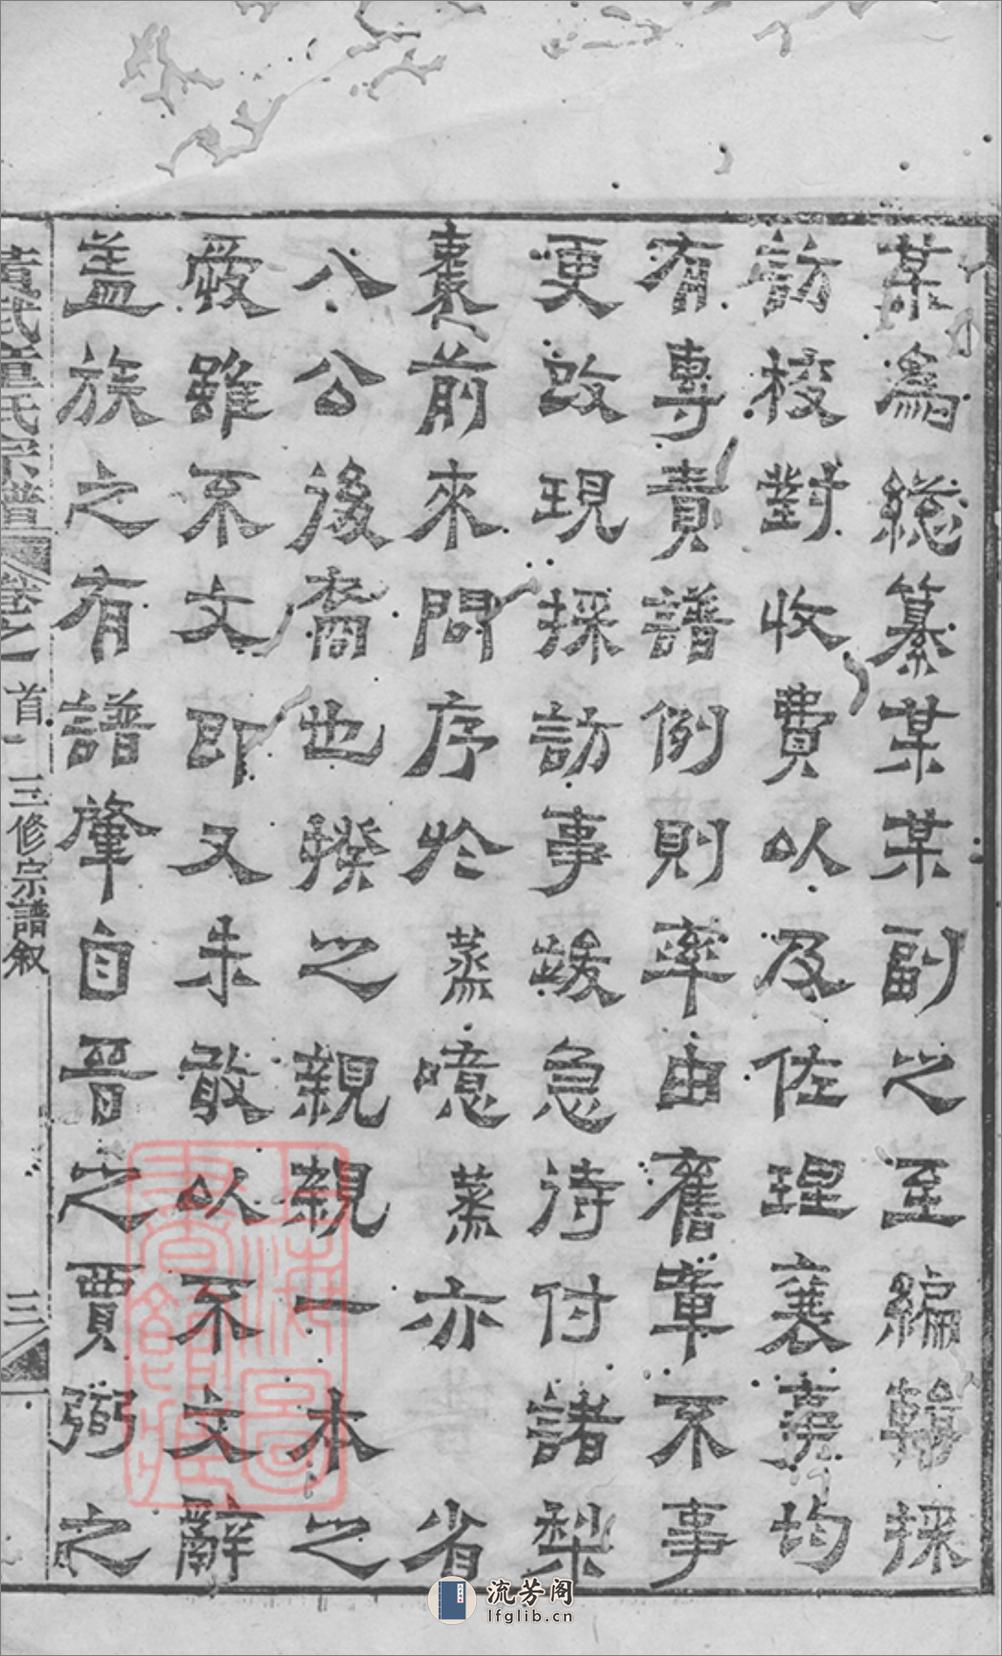 某為總纂某某副之至編輯採
訪校對收費以及佐理襄事均
有專責譜例則率由舊章不事
更改現採訪事竣急待付諸梨
棗前來問序於蒸噫蒸亦省
八公後裔也揆之親親一本之
愛雖不文即又未敢以不文辭
盖族之有譜肇自晉之賈弼之
黃武童氏宗譜 卷之一首 三修宗譜叙 三
上海圖書館藏
流芳阁
lfglib.cn